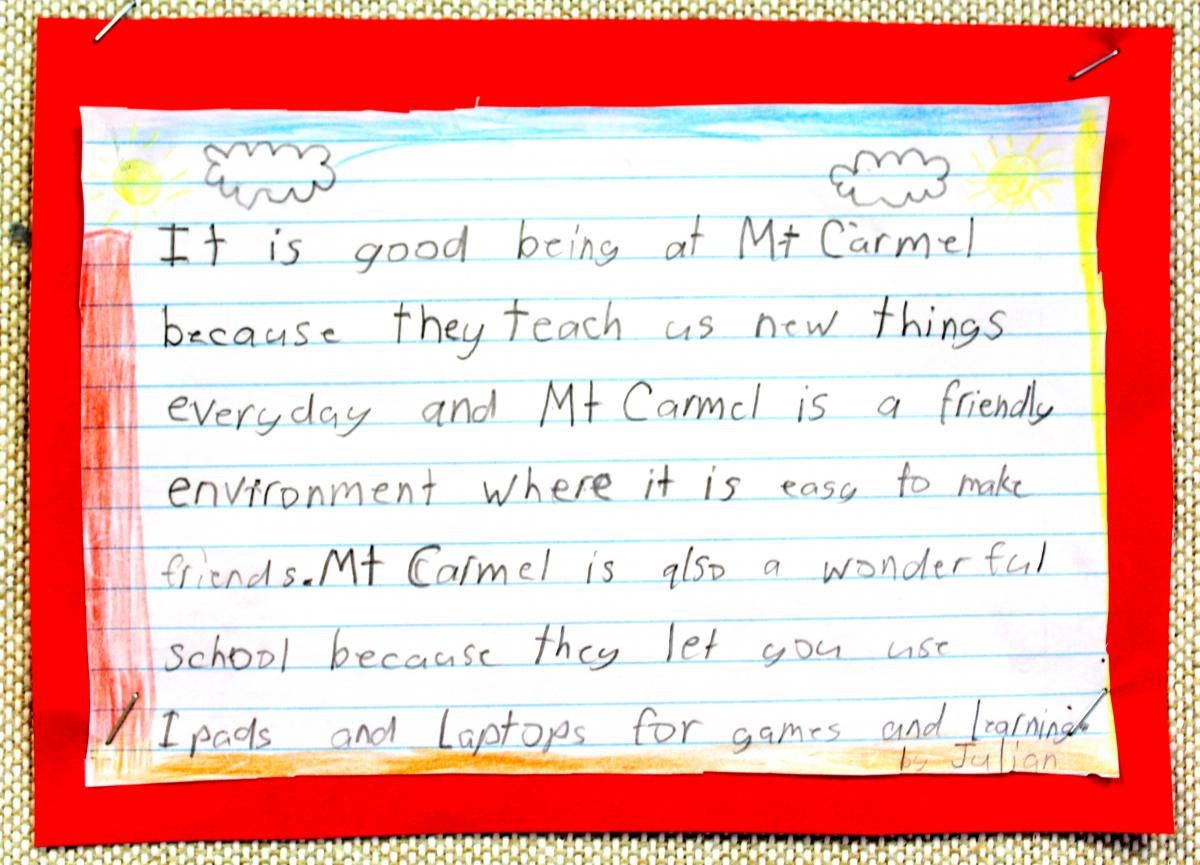 It is good being at Mt Carmel
because they teach us new things
everyday and Mt Carmel is a friendly
environment where it is easy to make
friends. Mt Carmel is also a wonderful
school because they let you use
Ipads and Laptops for games and learning.
by Julian